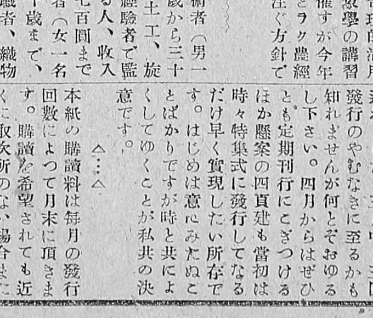 數學の講習
催すが今年
とラク農經
注ぐ方針で
術者（男一
歳から三十
士工、旋
經驗者で監
る人、收入
七百圓まで
者（女一名
十歳まで、
職者、織物
發行のやむなきに至るかも
知れませんが何とぞおゆる
し下さい。四月からはぜひ
とも定期刊行にこぎつける
ほか懸案の四頁建も當初は
時々特集式に發行してなる
だけ早く實現したい所存で
す。はじめは意にみたぬこ
とばかりですが時と共によ
くしてゆくことが私共の決
意です。
△…△
本紙の購讀料は每月の發行
回數によつて月末に頂きま
す。購讀を希望されても近
くに取次所のない場合は